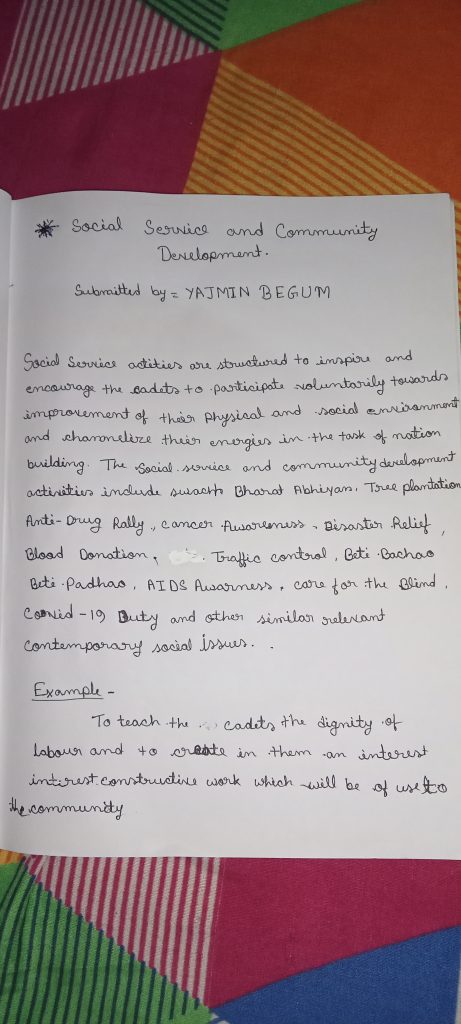 * Social Service and Community
Development.
Submitted by = YAJMIN BEGUM
Social Service actities are structured to inspire and
encourage the cadets to participate voluntarily towards
improvement of their physical and social environment
and channelize their energies in the task of nation
building. The Social service and community development
activities include swachh Bharat Abhiyan, Tree plantation
Anti-Drug Rally, cancer Awareness, Disaster Relief,
Blood Donation, Traffic control, Beti Bachao
Beti Padhao, AIDS Awarness, care for the Blind,
Covid-19 Duty and other similar relevant
contemporary social issues.
Example -
To teach the cadets the dignity of
labour and to create in them an interest
interest constructive work which will be of use to
the community